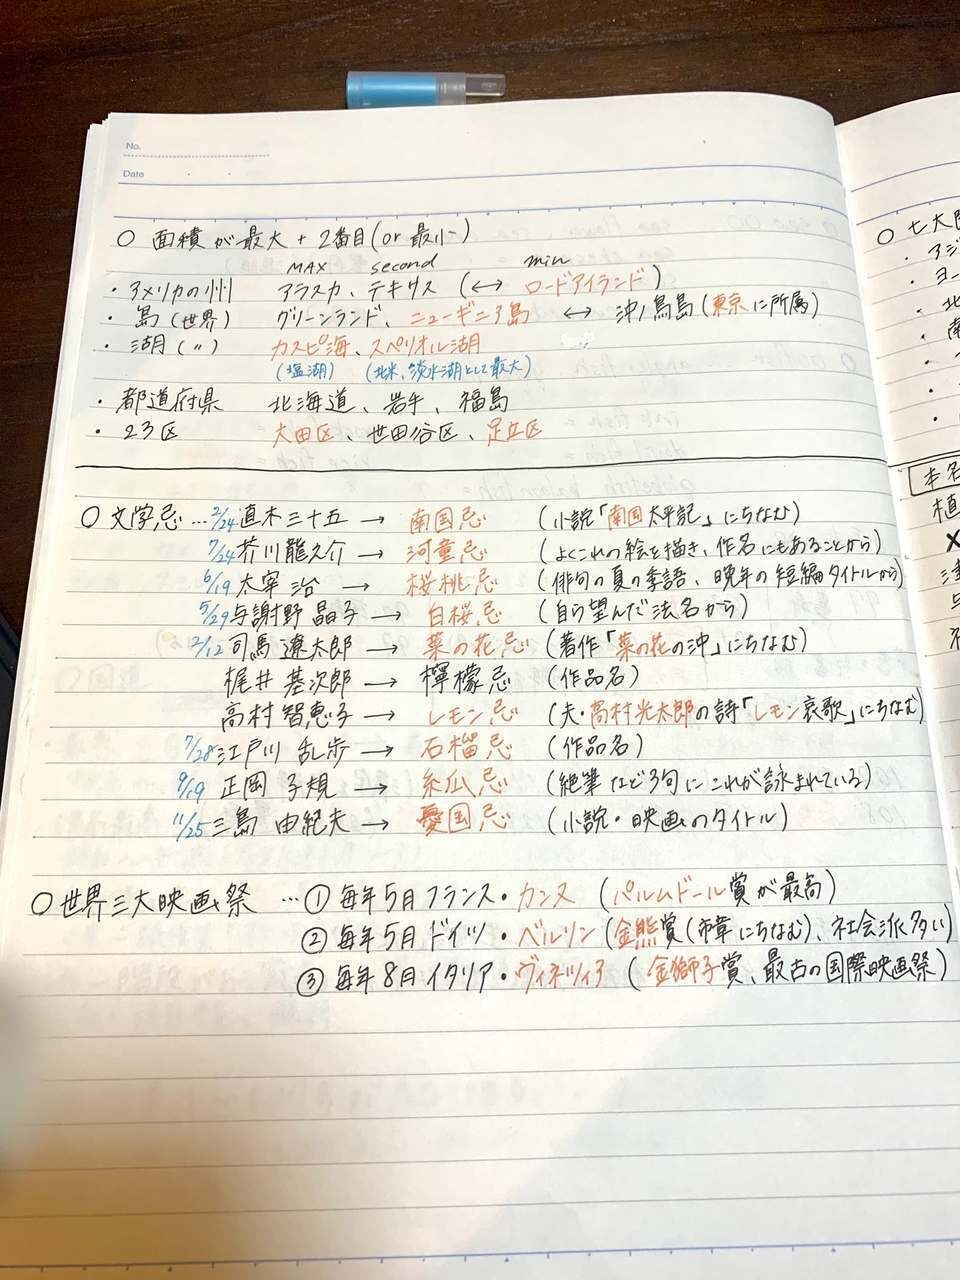 No.
Date
○ 面積が最大+2番目(or 最小)
MAX second min
・アメリカの州 アラスカ、テキサス (↔ ロードアイランド)
・島(世界) グリーンランド、ニューギニア島 ↔ 沖ノ鳥島(東京に所属)
・湖(〃) カスピ海、スペリオル湖
(塩湖) (北米、淡水湖として最大)
・都道府県 北海道、岩手、福島
・23区 大田区、世田谷区、足立区
○ 文学忌 … 2/24 直木三十五 → 南国忌 (小説「南国太平記」にちなむ)
7/24 芥川龍之介 → 河童忌 (よくこれの絵を描き、作名にもあることから)
6/19 太宰 治 → 桜桃忌 (俳句の夏の季語、晩年の短編タイトルから)
5/29 与謝野 晶子 → 白桜忌 (自ら望んだ法名から)
2/12 司馬 遼太郎 → 菜の花忌 (著作「菜の花の沖」にちなむ)
梶井 基次郎 → 檸檬忌 (作品名)
高村 智恵子 → レモン忌 (夫・高村光太郎の詩「レモン哀歌」にちなむ)
7/28 江戸川 乱歩 → 石榴忌 (作品名)
9/19 正岡 子規 → 糸瓜忌 (絶筆など3句にこれが詠まれている)
11/25 三島 由紀夫 → 憂国忌 (小説・映画のタイトル)
○ 世界三大映画祭 … ① 毎年5月 フランス・カンヌ (パルムドール賞が最高)
② 毎年5月 ドイツ・ベルリン (金熊賞(市章にちなむ)、社会派多い)
③ 毎年8月 イタリア・ヴィネツィア (金獅子賞、最古の国際映画祭)
○ 七大
・アジ
・ヨー
・北
・南
本名
植